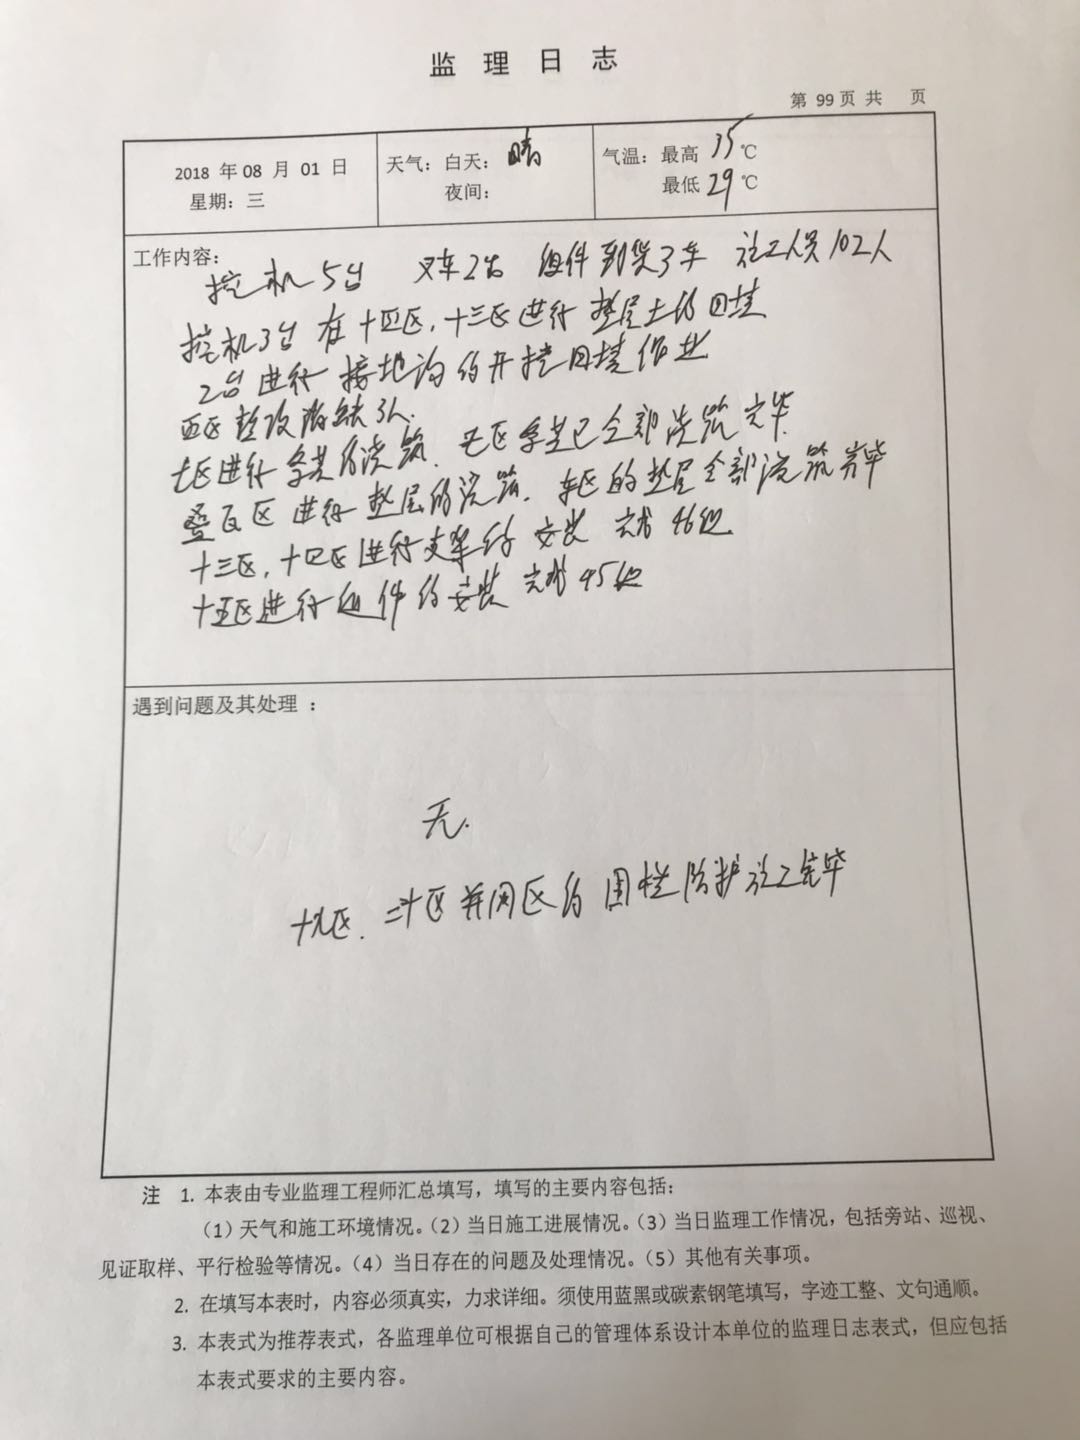 监 理 日 志
第 99 页 共 页
2018 年 08 月 01 日
星期：三
天气：白天： 晴
夜间：
气温：最高 35 ℃
最低 29 ℃
工作内容：
挖机5台 叉车2台 组件到货3车 施工人员102人
挖机3台 在十四区，十三区进行 垫层土的回填
2台进行 接地沟的开挖回填作业
西区整改消缺3人.
七区进行 的浇筑. 七区 已全部浇筑完毕.
叠瓦区进行垫层的浇筑. 东区的垫层全部浇筑完毕
十三区，十四区进行支架的 安装 完成46组
十五区进行组件的安装 完成45组
遇到问题及其处理 ：
无.
十九区. 二十区并网区的 围栏防护施工完毕
注 1. 本表由专业监理工程师汇总填写，填写的主要内容包括：
（1）天气和施工环境情况。（2）当日施工进展情况。（3）当日监理工作情况，包括旁站、巡视、
见证取样、平行检验等情况。（4）当日存在的问题及处理情况。（5）其他有关事项。
2. 在填写本表时，内容必须真实，力求详细。须使用蓝黑或碳素钢笔填写，字迹工整、文句通顺。
3. 本表式为推荐表式，各监理单位可根据自己的管理体系设计本单位的监理日志表式，但应包括
本表式要求的主要内容。